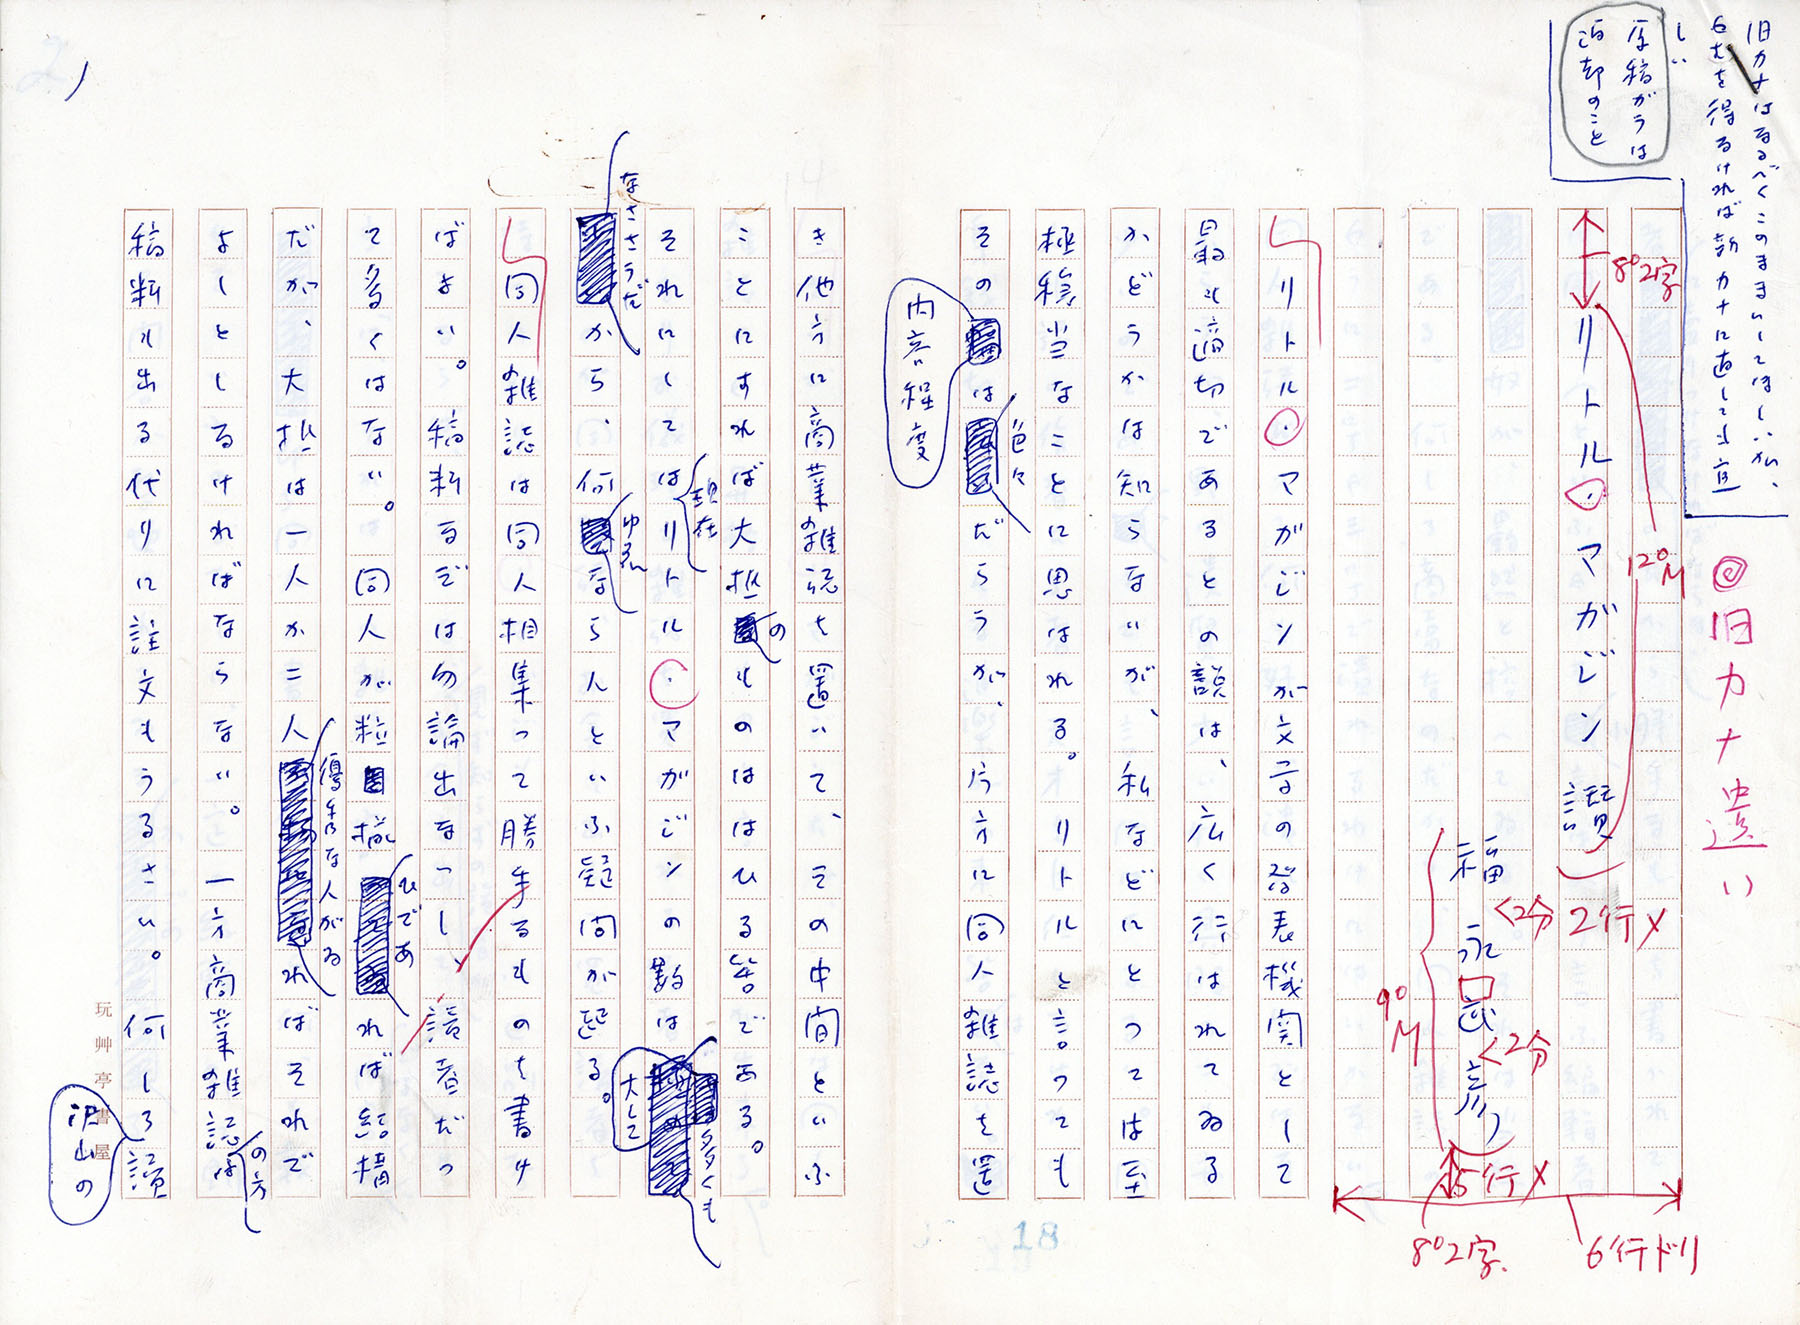 旧カナはなるべくこのままいしてほしいが、
6むを得るければ新カナに直しても宜
しい
原稿がラは
返却のこと
◎旧カナ遣い
8°2字
12°M
リトル・マガジン 讃
2行〆
福永武彦
<2分
<2分
9°M
5行〆
8°2字
6行ドリ
リトル・マガジンが文学の発表機関として
最も適切であるとの説は、広く行はれてゐる
かどうかは知らないが、私などにとつては至
極穏当なことに思はれる。リトルと言つても
その内容程度は色々だらうが、片方に同人雑誌を置
18
き他方に商業雑誌を置いて、その中間といふ
ことにすれば大抵のものははひる筈である。
それにしては現在リトル・マガジンの数は大して多くも
なささうだから、何ゆゑならんといふ疑問が起る。
同人雑誌は同人相集つて勝手なものを書け
ばよい。稿料なぞは勿論出なつし、読者だつ
て多くはない。同人が粒揃ひであれば結構
だが、大抵は一人か二人優秀な人がゐればそれで
よしとしなければならない。一方商業雑誌の方は
稿料も出る代りに註文もうるさい。何しろ沢山の読
玩艸亭書屋
2